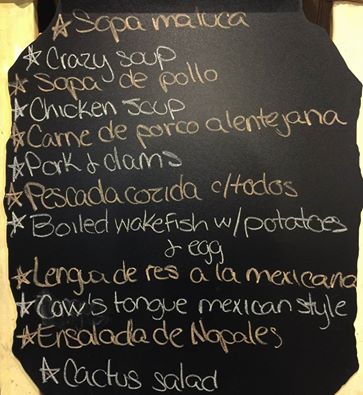 Sopa maluca
Crazy soup
Sopa de pollo
Chicken Soup
Carne de porco alentejana
Pork & clams
Pescada cozida c/todos
Boiled wakefish w/potatoes
& egg
Lengua de res a la mexicana
Cow's tongue mexican style
Ensalada de Nopales
Cactus salad